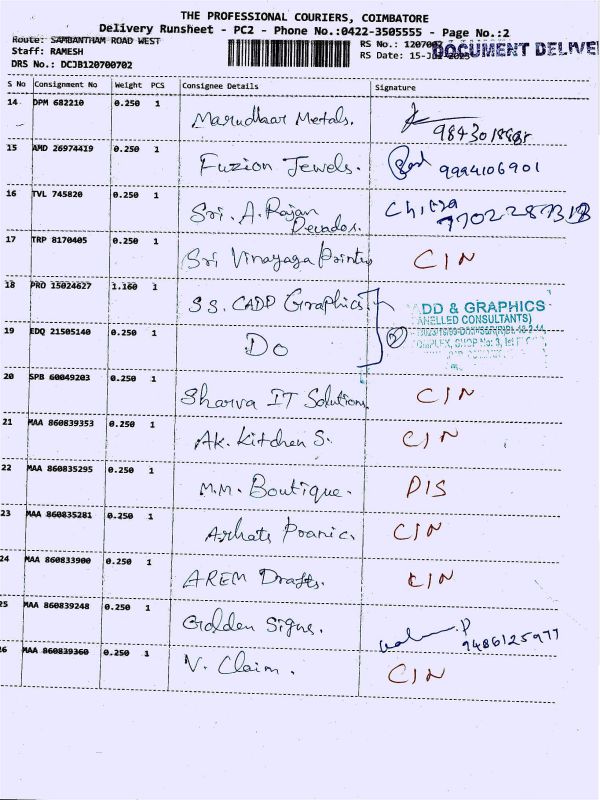 THE PROFESSIONAL COURIERS, COIMBATORE
Delivery Runsheet - PC2 - Phone No.:0422-3505555 - Page No.:2
Route: SAMBANTHAM ROAD WEST
RS No.: 120700
DOCUMENT DELIVE
Staff: RAMESH
RS Date: 15-
DRS No.: DCJB120700702
S No Consignment No Weight PCS Consignee Details Signature
14 DPM 682210 0.250 1 Marudhaar Metals.
15 AMD 26974419 0.250 1 Fuzion Jewels. 9994106901
16 TVL 745820 0.250 1 Sri. A. Rajan Chitra
17 TRP 8170405 0.250 1 Sri Vinayaga Printers CIN
18 PRO 15024627 1.160 1 S.S. CADD Graphics
DD & GRAPHICS
ANELLED CONSULTANTS)
SHOP No: 3, Ist
19 EDQ 21505140 0.250 1 Do
20 SPB 60049203 0.250 1 Sharva IT Solutions CIN
21 MAA 860839353 0.250 1 AK. Kitchen S. CIN
22 MAA 860835295 0.250 1 M.M. Boutique. DIS
23 MAA 860835281 0.250 1 CIN
24 MAA 860833900 0.250 1 AREM Drafts. CIN
25 MAA 860839248 0.250 1 Golden Signs. P
9486125977
26 MAA 860839360 0.250 1 V. Claim. CIN